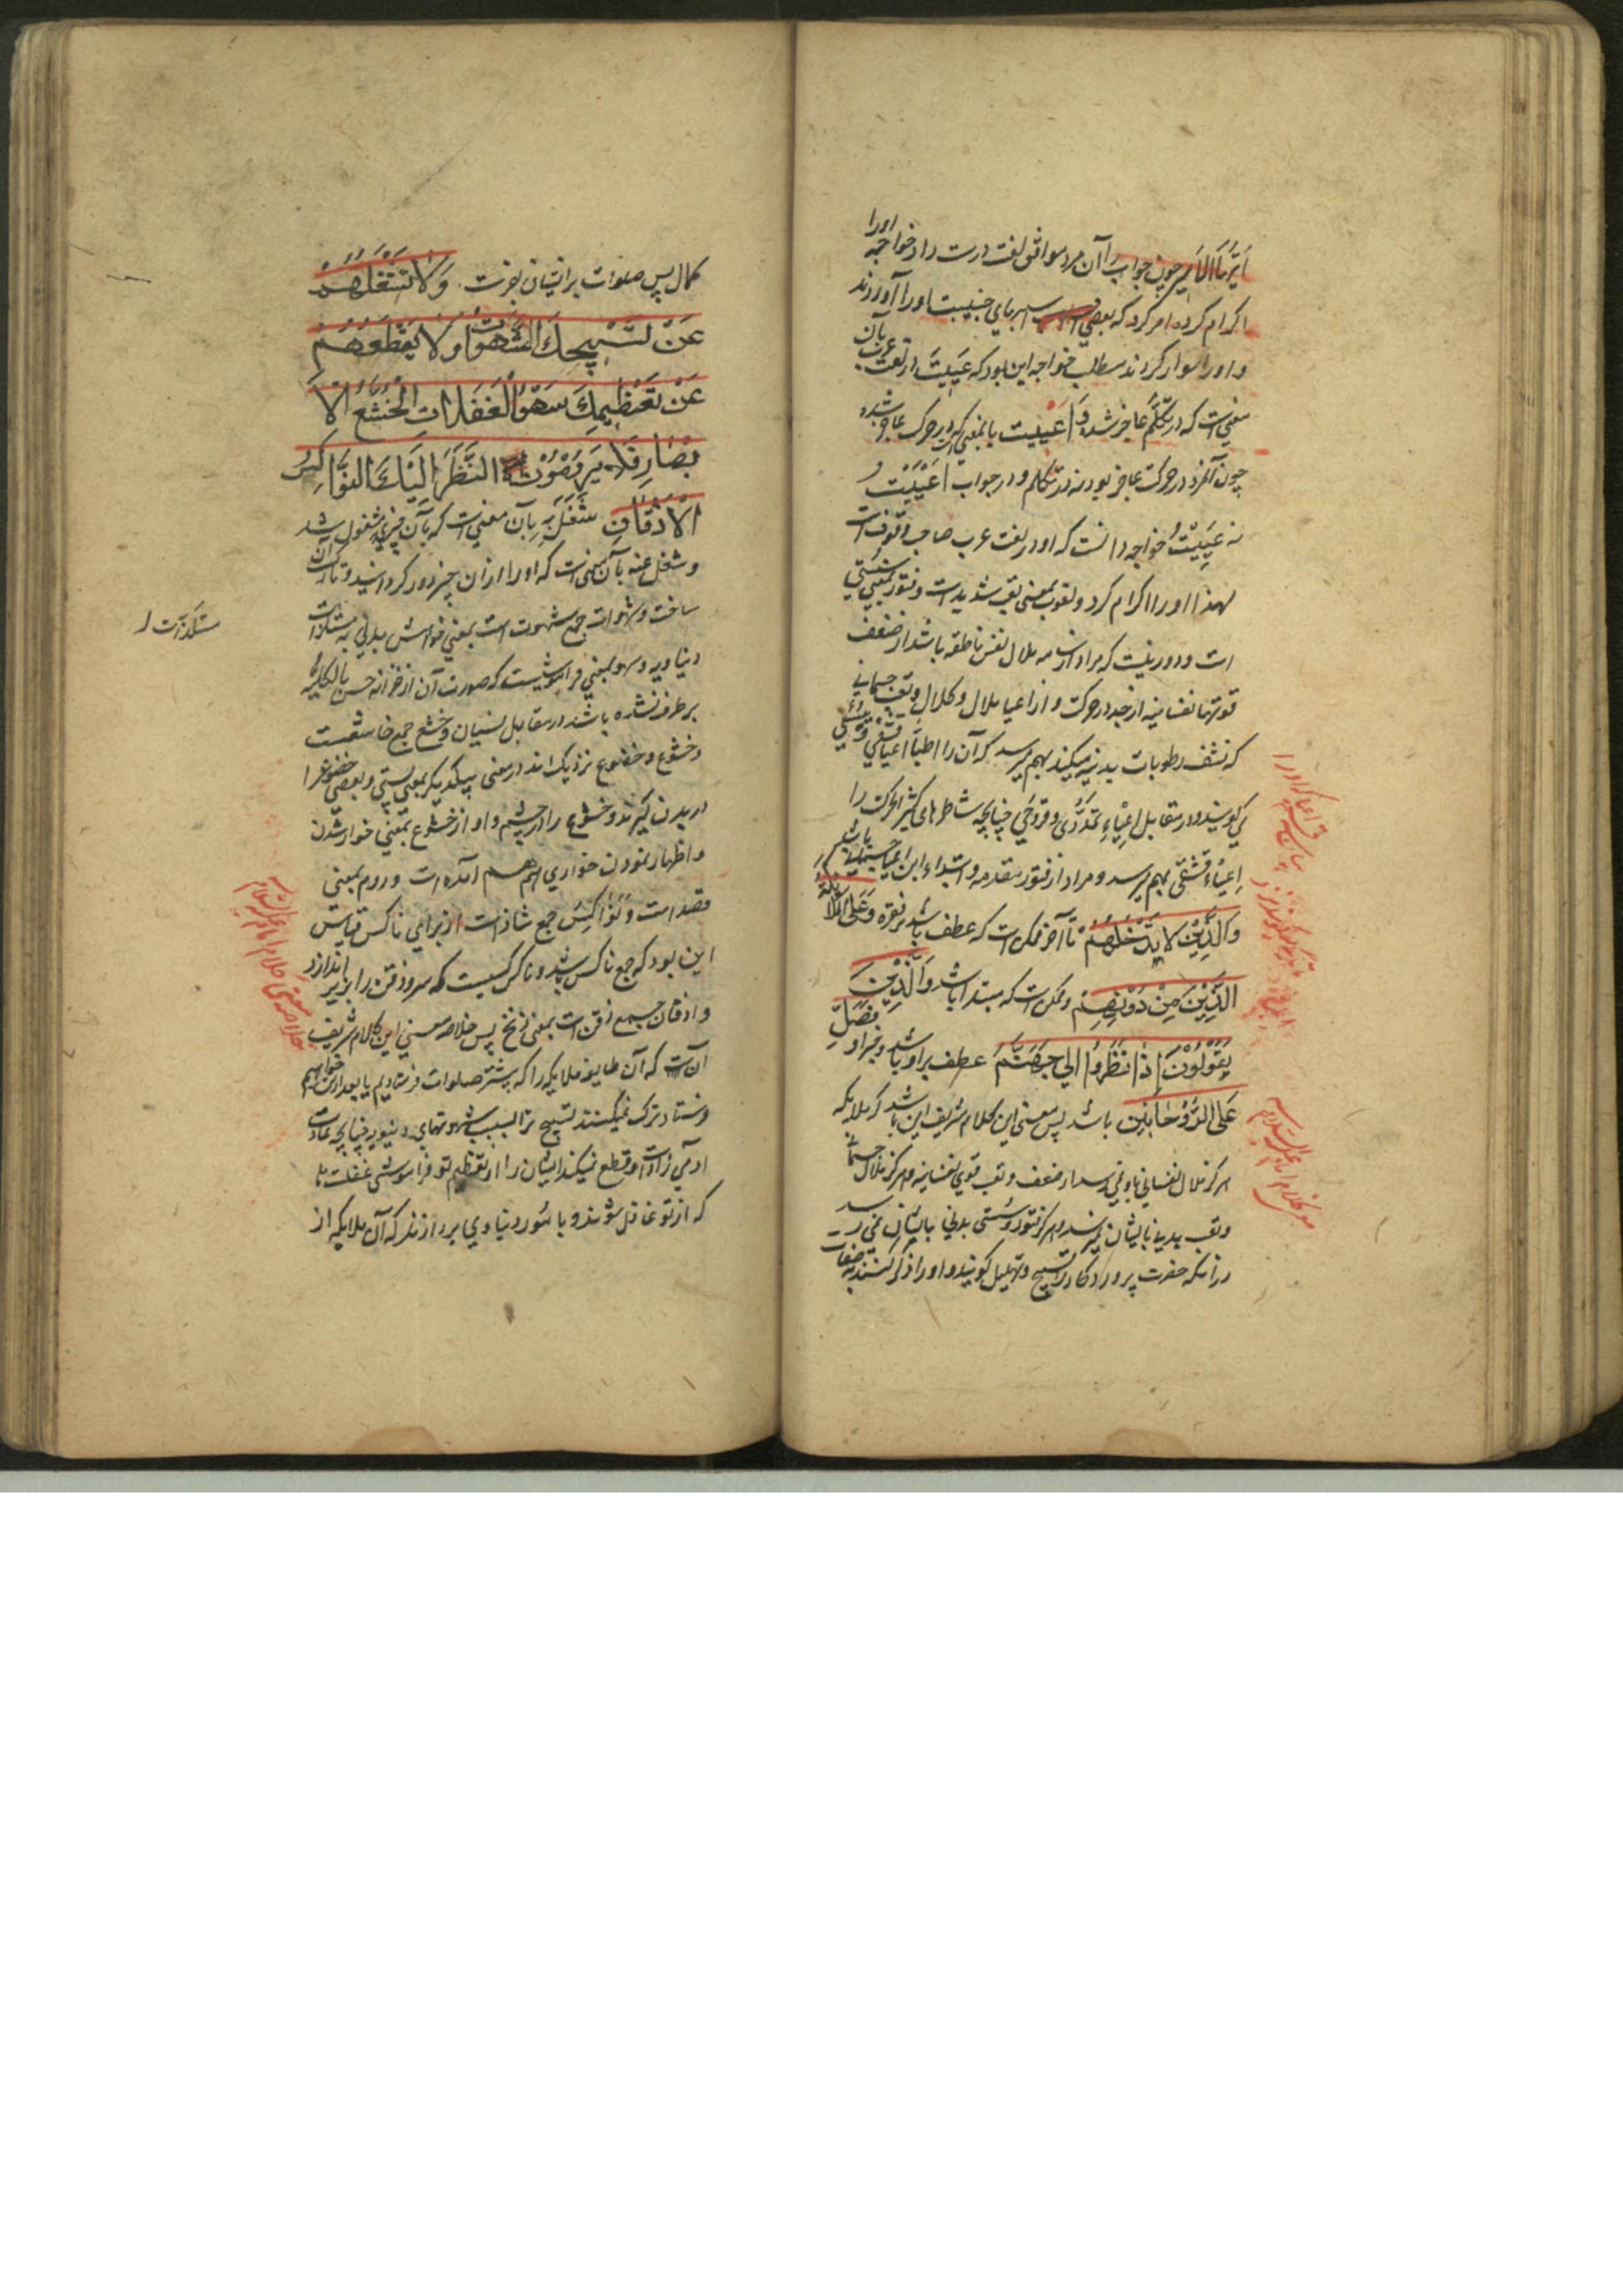 چون جواب را آن مرد موافق لغت درست داد خواجه اورا
اکرام کرده امر کرد که بعضی اسبهای جنیبت اورا آوردند
و اورا سوار کردند مطلب خواجه این بود که عَیِیتَ در لغت عرب بآن
معنی است که در تکلم عاجز شده و اَعْیَیت باینمعنی که در حرکت عاجز شده
چون آنمرد در حرکت عاجز بود نه در تکلم و در جواب اَعْیَیْتُ
نه عَیِیْتُ خواجه دانست که او در لغت عرب صاحب وقوفست
لهذا اورا اکرام کرد و لغوب بمعنی تعب شدید است و فتور بمعنی سستی
است و دور نیست که مراد از سامه ملال نفس ناطقه باشد از ضعف
قوتها نفسانیه از خد در حرکت و از اعیا ملال و کلال وتعب جسمانی
که نشف رطوبات بدنیه میکند بهم میرسد که آن را اطبا اعیا قشفی
می گویند و در مقابل اِعْیاءِ تمددی و قروحی چنانچه شاطرهای کثیر الحرکت را
اِعْیاء قشفی بهم میرسد و مراد از فتور مقدمه و ابتداء این اعیا
وَالَّذِیْنَ لَا یَدْخُلُهُمْ تا آخر ممکن است که عطف باشد بر فقره وَعَلَی المَلَائِکَةِ
الَّذِیْنَ مِنْ دُوْنِهِمْ و ممکن است که مبتدا باشد وَالَّذِیْنَ
یَقُوْلُوْنَ اِذَا نَظَرُوا اِلی جَهَنَّمَ عطف بر او باشد و خبر او فَصَلِّ
عَلَی الرُّوْحَانِیِّیْن باشد پس معنی این کلام شریف این باشد که ملایکه
هرگز ملال نفسانی باو نمی رسد از ضعف و تعب قوی نفسانیه و هرگز ملال جسمانی
وتعب بدنیه بایشان نمیرسد و هرگز فتور و سستی بدنی بایشان نمی رسد
در انکه حضرت پروردکار را تسبیح و تهلیل گویند و اورا ذکر کنند بصفات
کمال پس صلوات بر ایشان بفرست وَلَا تَشْغَلُهُمْ
عَنْ تَسْبِیْحِکَ الشَّهَوَاتُ وَلَا یَقْطَعُهُمْ
عَنْ تَعْظِیْمِکَ سَهْوُ الْغَفَلَاتِ الْخُشَّعُ الْاَ
بْصَارِ فَلَا یَرُوْمُوْنَ النَّظَرَ اِلَیْکَ النَّوَاکِسُ
الْاَذْقَانِ شَغَلَ بِهِ بآن معنی است که بآن چیز مشغول شد
و شغل عنه بآن معنی است که اورا از آن چیز دور کردانید و تارک آن
ساخت و شهوات جمع شهوت است بمعنی خواهش بدنی به مستلذات
دنیاویه و سهو بمعنی فراموشیست که صورت آن از خزانه حس بالکلیه
بر طرف نشده باشد در مقابل نسیان و خشع جمع خاشعست
و خشوع و خضوع نزدیک اند در معنی بیکدیکر بمعنی پستی و بعضی خضوع را
در بدن گیرند و خشوع را در چشم و آواز و خشوع بمعنی خوار شدن
و اظهار نمودن خواری هم آمده است و روم بمعنی
قصد است و نَوَاکِسْ جمع شاذ است از برای ناکس قیاس
این بود که جمع ناکسه باشد و ناکس کسیست که سر و ذقن را بزیر اندازد
و اذقان جمع ذقن است بمعنی زنخ پس خلاصه معنی این کلام شریف
آنست که آن طایفه ملایکه را که پیشتر صلوات فرستادیم یا بعد ازین خواهیم
فرستاد ترک نمیکنند تسبیح ترا بسبب شهوتهای دنیویه چنانچه عادت
آدمی زادست و قطع نمیکند ایشان را از تعظیم تو فراموشی غفلت تا
که از تو غافل شوند و بامور دنیاوی پردازند که آن ملایکه از
مستلذات
خلاصه معنی کلام امام علیه السلام